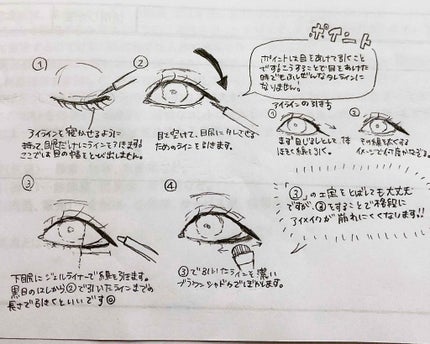 ポイント
ポイントは目をあけて引くこと
です!こうすることで目をあけた
時でもふしぜんなタレラインに
なりません!
①
②
アイラインを寝かせるように
持って、目尻だけにラインを引きます。
ここでは目の幅をとび出しません。
目を空けて、目尻にタレさせる
ためのラインを引きます。
アイラインの引き方
①
②
まず目じるしとして
ほそく線を引く。
その線を太くする
イメージで
③
④
「③」の工程をとばしても大丈夫
ですが、③をすることで格段に
アイメイクが崩れにくくなります!!
下眼にジェルライナーで線を引きます。
黒目のはしから②で引いたラインまでの
長さで引くといいです
③で引いたラインを濃い
ブラウンシャドウでぼかします。